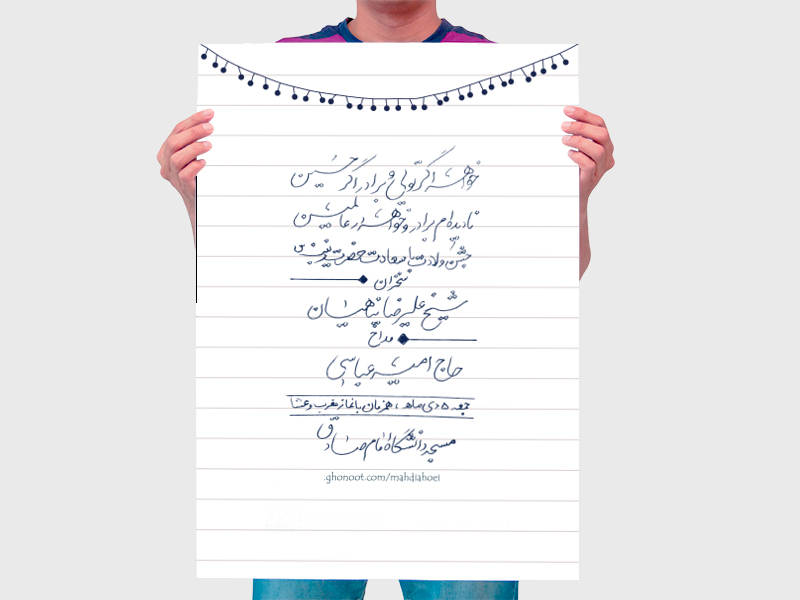 خواهر اگر تویی و برادر اگر حسین
نادیده‌ام برادر و خواهر در عالمین
جشن ولادت با سعادت حضرت زینب س
سخنران
شیخ علیرضا پناهیان
مداح
حاج امیر عباسی
جمعه ۵ دی ماه، همزمان با نماز مغرب و عشا
مسجد دانشگاه امام صادق
ghonoot.com/mahdiahoei